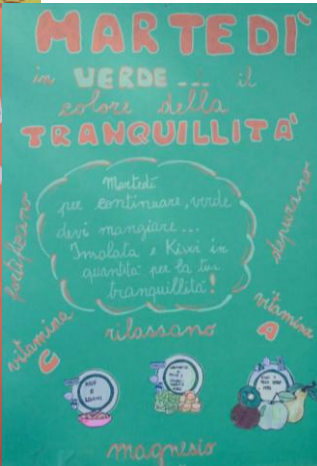 MARTEDÌ
in VERDE ... è il
colore della
TRANQUILLITÀ
Martedì
per continuare, verde
devi mangiare...
Insalata e Kiwi in
quantità per la tua
tranquillità!
fortificano
depurano
vitamina
C
rilassano
vitamina
A
magnesio